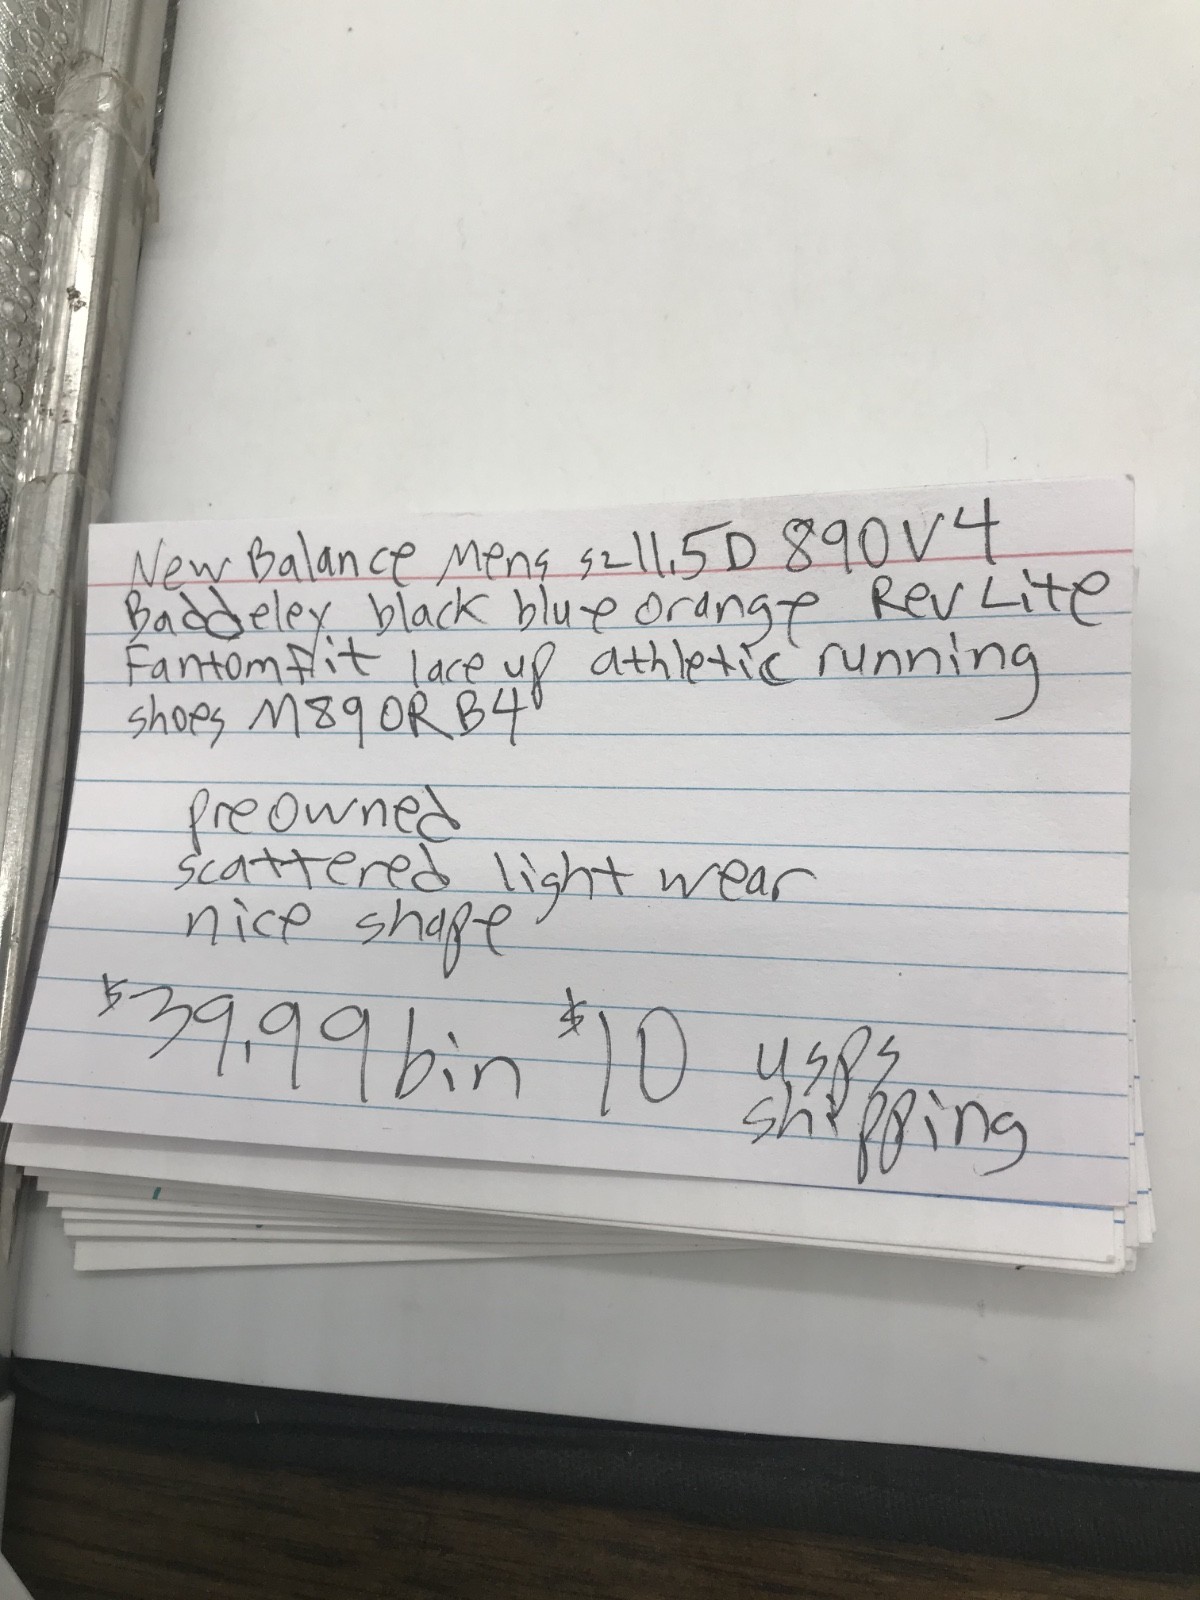 New Balance Mens sz 11.5D 890V4
Baddeley black blue orange RevLite
Fantomfit lace up athletic running
shoes M890RB4
preowned
scattered light wear
nice shape
$39.99 bin $10 usps
shipping